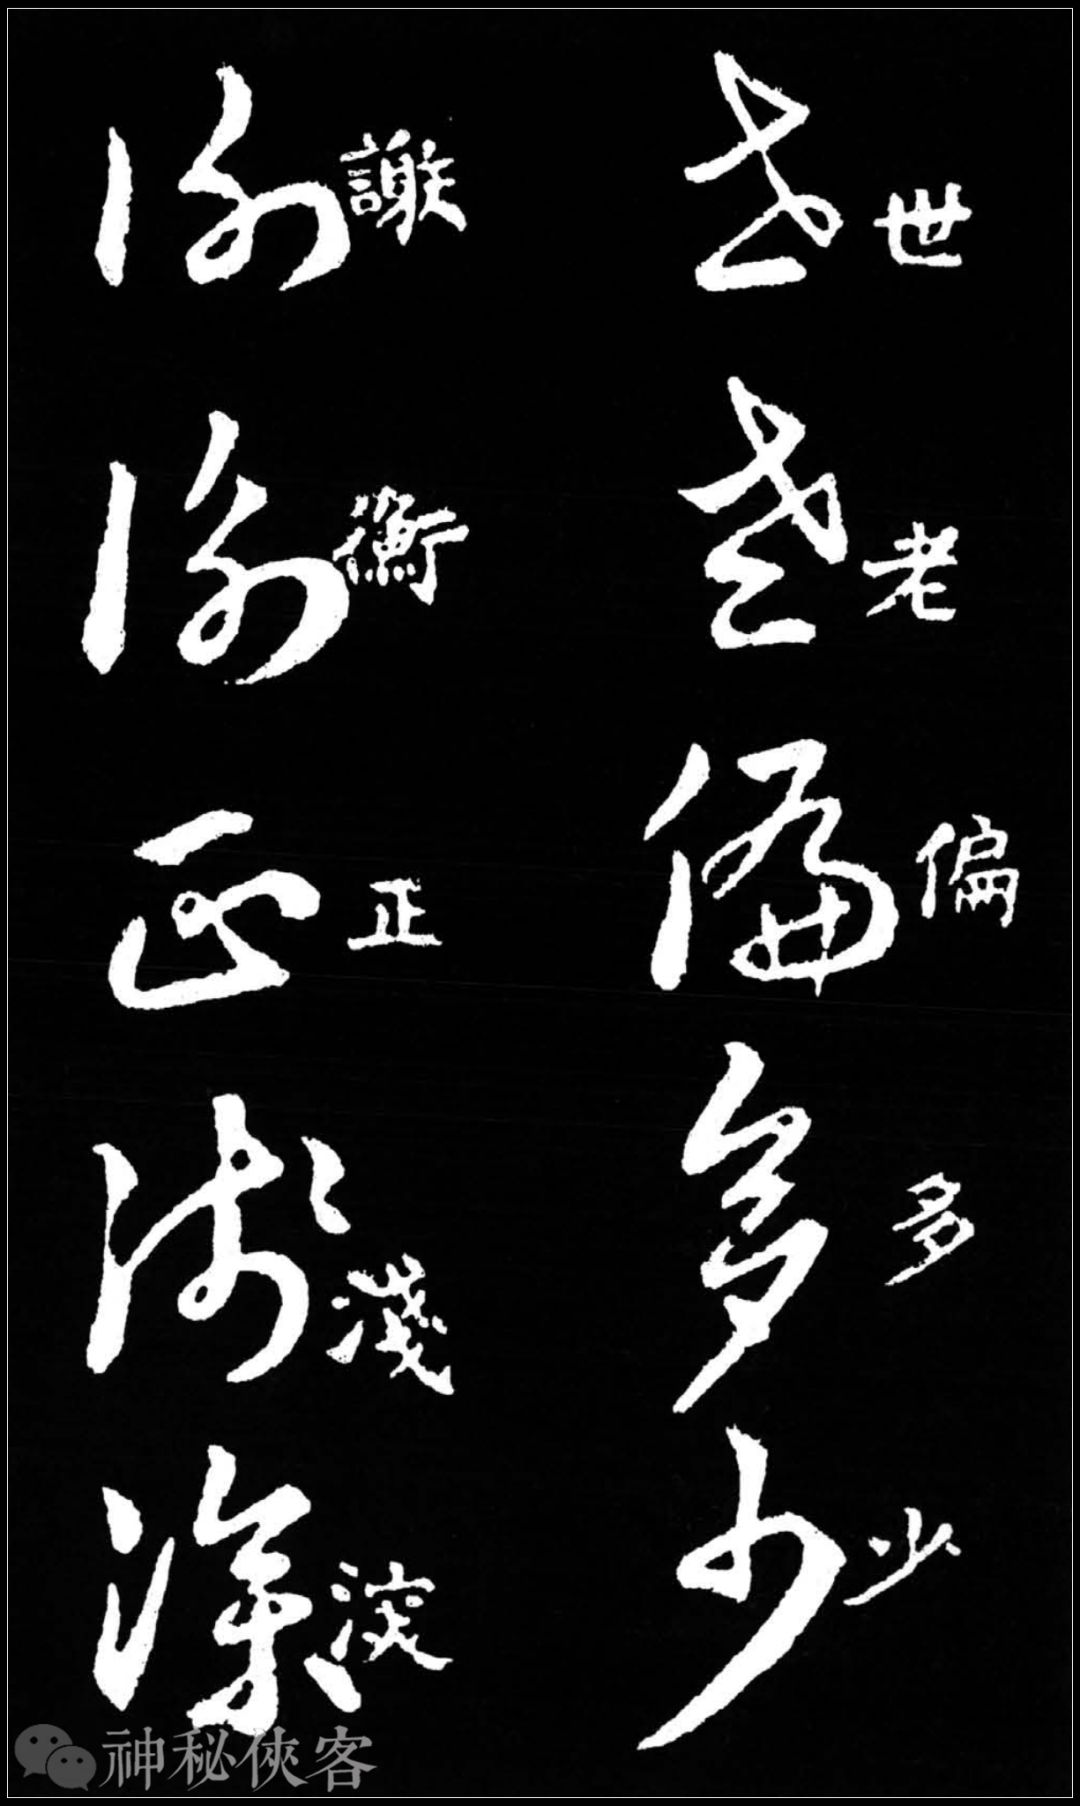 世老偏多少
謝衡正淺深
神秘俠客